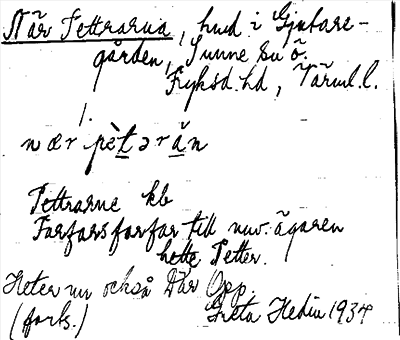 När Pettrarna, hmd i Gjutare-
gården, Sunne sn ö.
Fryksd. hd, Värml. l.
1.
nær pèt̲ərä̲n
Pettrarne kb
Farfarsfarfar till nuv. ägaren
hette Petter.
Heter nu också Där Opp.
(forts.) Greta Hedin 1934